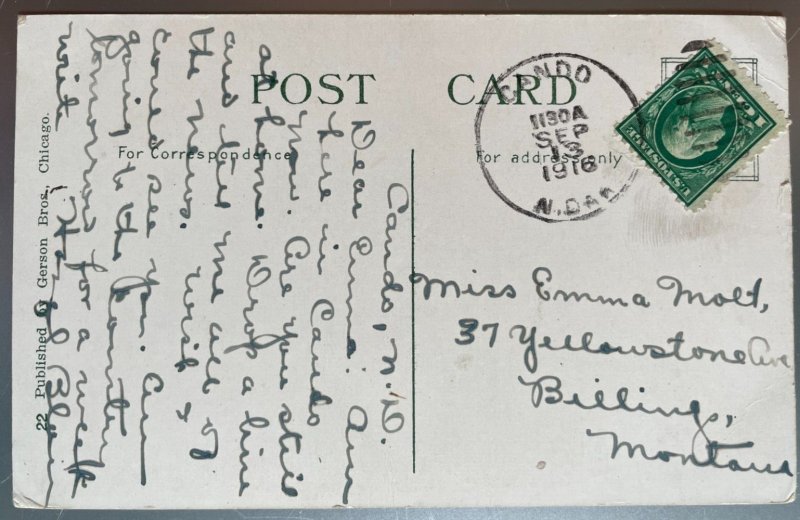 POST CARD
For Correspondence
For address only
22 Published by Gerson Bros., Chicago.
CANDO
1130A
SEP
13
1916
N.DAK
U.S.POSTAGE
Cando, N.D.
Dear Emma: Am
here in Cando
now. Are you still
at home. Drop a line
and tell me all
the news. wish I
could see you. Am
going to the Country
tomorrow for a week
visit. Hazel
Miss Emma Molt,
37 Yellowstone Ave
Billings,
Montana